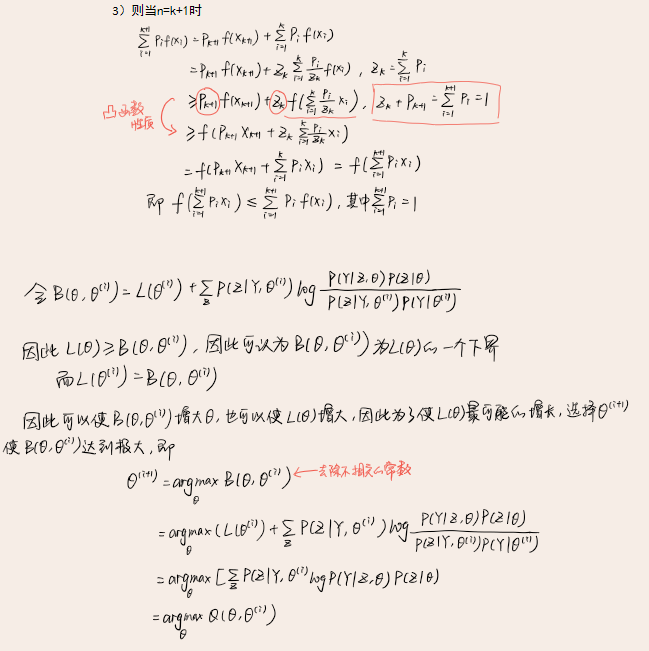 3）则当n=k+1时
∑_{i=1}^{k+1} P_i f(x_i) = P_{k+1} f(x_{k+1}) + ∑_{i=1}^{k} P_i f(x_i)
= P_{k+1} f(x_{k+1}) + Z_k ∑_{i=1}^{k} \frac{P_i}{Z_k} f(x_i) , Z_k = ∑_{i=1}^{k} P_i
≥ P_{k+1} f(x_{k+1}) + Z_k f(∑_{i=1}^{k} \frac{P_i}{Z_k} x_i) , Z_k + P_{k+1} = ∑_{i=1}^{k+1} P_i = 1
凸函数
性质
≥ f(P_{k+1} X_{k+1} + Z_k ∑_{i=1}^{k} \frac{P_i}{Z_k} x_i)
= f(P_{k+1} X_{k+1} + ∑_{i=1}^{k} P_i X_i) = f(∑_{i=1}^{k+1} P_i x_i)
即 f(∑_{i=1}^{k+1} P_i x_i) ≤ ∑_{i=1}^{k+1} P_i f(x_i) , 其中 ∑_{i=1}^{k+1} P_i = 1
令 B(θ, θ^{(i)}) = L(θ^{(i)}) + ∑_Z P(Z|Y, θ^{(i)}) log \frac{P(Y|Z,θ)P(Z|θ)}{P(Z|Y,θ^{(i)})P(Y|θ^{(i)})}
因此 L(θ) ≥ B(θ, θ^{(i)}) , 因此可认为 B(θ, θ^{(i)}) 为L(θ)的一个下界
而 L(θ^{(i)}) = B(θ, θ^{(i)})
因此可以使B(θ,θ^{(i)})增大θ, 也可以使L(θ)增大, 因此为了使L(θ)最可能的增长, 选择θ^{(i+1)}
使B(θ,θ^{(i)})达到极大, 即
θ^{(i+1)} = argmax_θ B(θ, θ^{(i)}) ← 去除不相关的常数
= argmax_θ (L(θ^{(i)}) + ∑_Z P(Z|Y, θ^{(i)}) log \frac{P(Y|Z,θ)P(Z|θ)}{P(Z|Y,θ^{(i)})P(Y|θ^{(i)})}
= argmax_θ [∑_Z P(Z|Y, θ^{(i)} log P(Y|Z,θ) P(Z|θ)
= argmax_θ Q(θ, θ^{(i)})